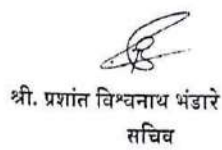 श्री. प्रशांत विश्वनाथ भंडारे
सचिव